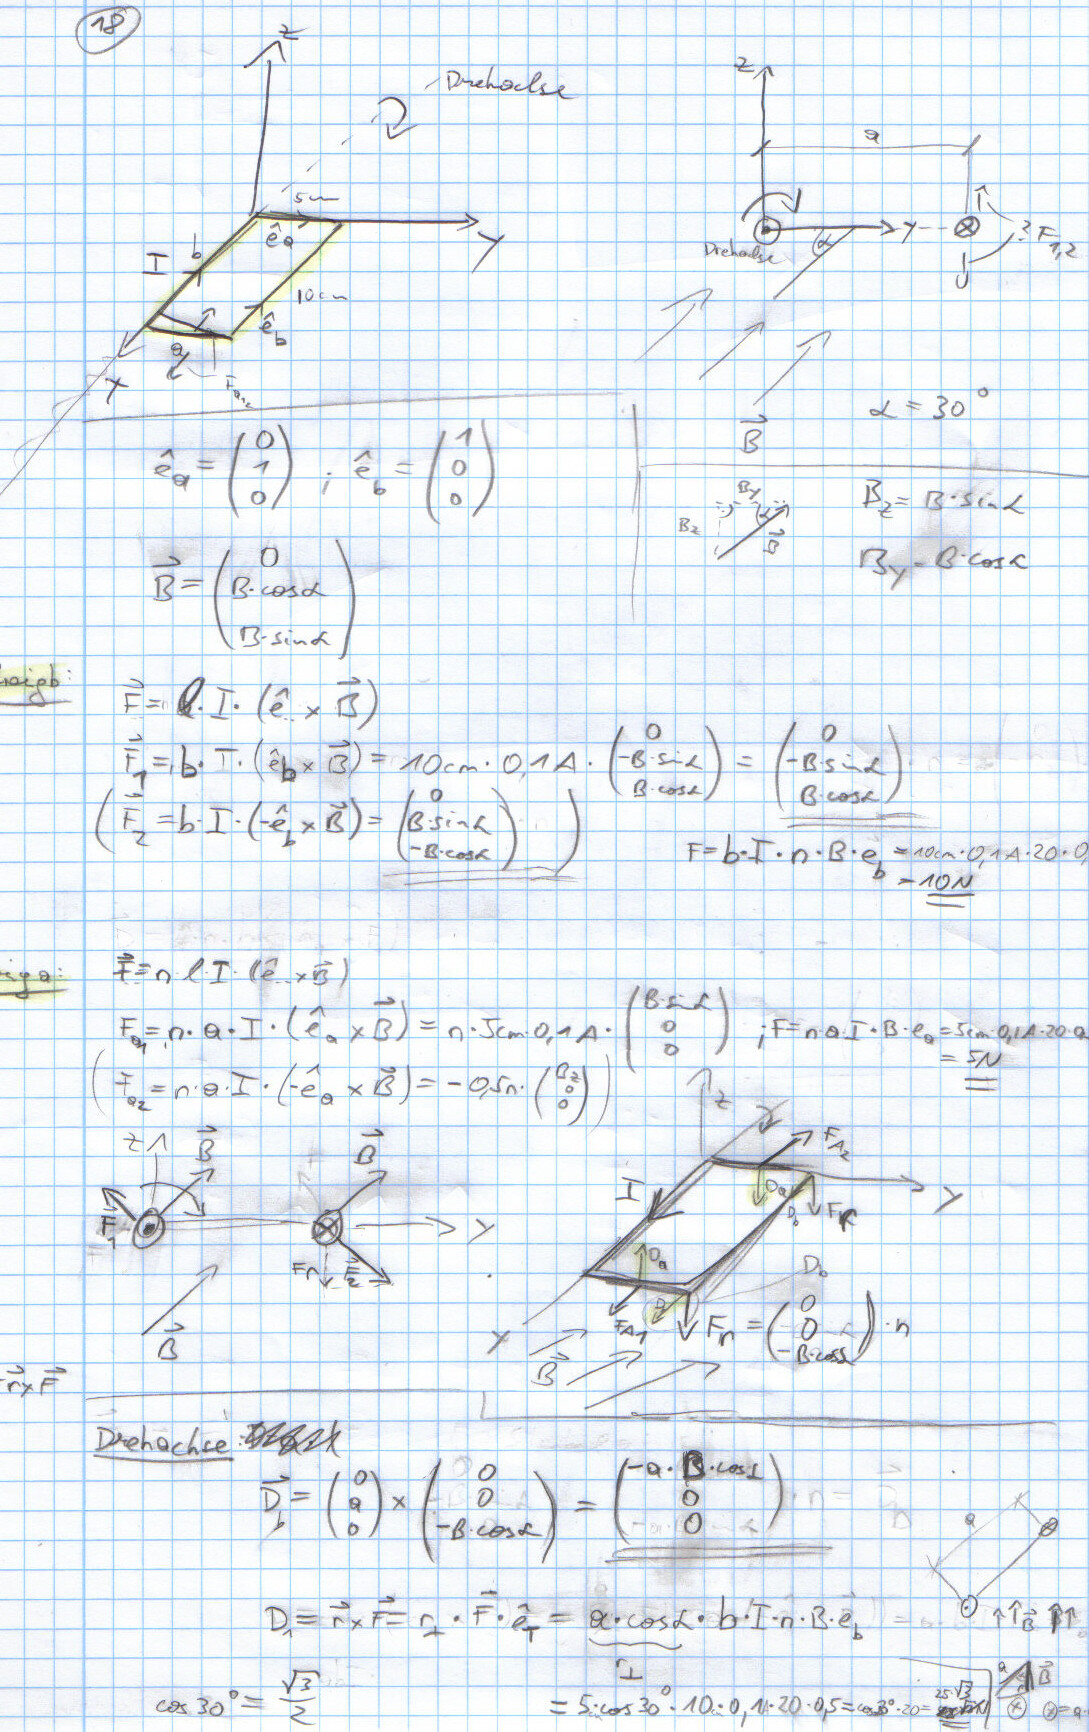 18
z
Drehachse
5cm
ê_a
Y
I
b
10cm
ê_b
a
X
z
a
Drehachse
α
Y
? F_1,2
B⃗
α = 30°
ê_a = (0 1 0) ; ê_b = (1 0 0)
B_y
B_z
α
B⃗
B_z = B·sinα
B_y = B·cosα
B⃗ = (0 B·cosα B·sinα)
F⃗ = l·I·(ê × B⃗)
F⃗_1 = b·I·(ê_b × B⃗) = 10cm·0,1A·(0 -B·sinα B·cosα) = (0 -B·sinα B·cosα)
(F⃗_2 = b·I·(-ê_b × B⃗) = (0 B·sinα -B·cosα))
F = b·I·n·B·e_b = 10cm·0,1A·20·0,
= 10N
F⃗ = n·l·I·(ê × B⃗)
F_a1 = n·a·I·(ê_a × B⃗) = n·5cm·0,1A·(B·sinα 0 0) ; F = n·a·I·B·e_a = 5cm·0,1A·20·0,
= 5N
(F_a2 = n·a·I·(-ê_a × B⃗) = -0,5n·(B_z 0 0))
z
B⃗
F⃗_1
B⃗
Y
F_n
F⃗_2
B⃗
z
F_A2
I
D_a
Y
D_a
D_b
F_A1
F_n = (0 0 -B·cosα)·n
X
B⃗
r⃗×F⃗
Drehachse:
D⃗_b = (0 a 0) × (0 0 -B·cosα) = (-a·B·cosα 0 0)
a
D_1 = r⃗×F⃗ = r_⊥·F⃗·ê_T = a·cosα·b·I·n·B·e⃗_b =
r_⊥
cos 30° = √3/2
= 5·cos30°·10·0,1·20·0,5 = cos30°·20 =
a
B⃗